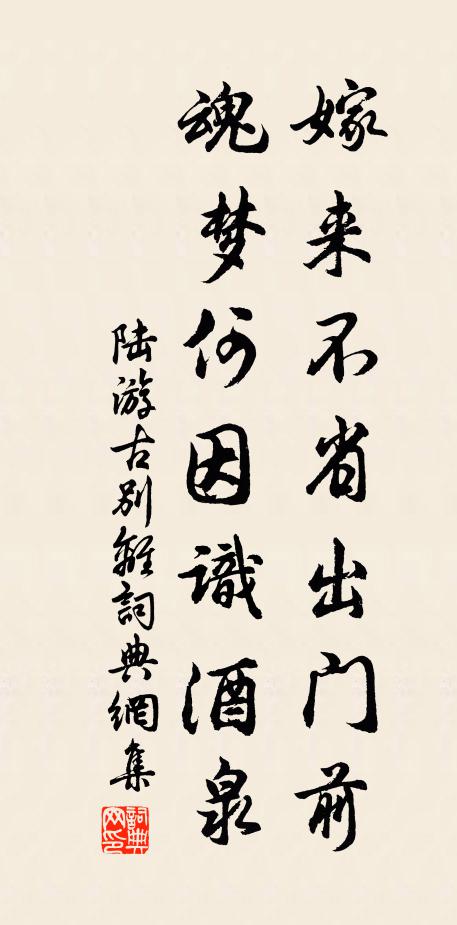 嫁来不省出门前
魂梦何因識酒泉
陆游古别離詞典網集
詞典
网印